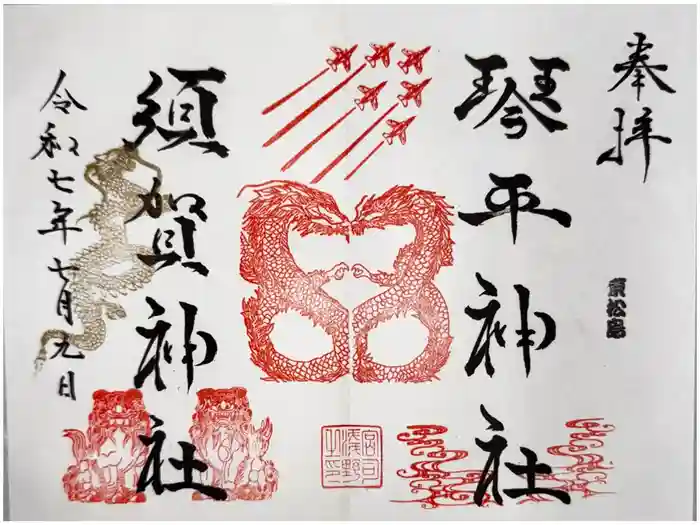 奉拝
東松島
琴平神社
宮司
浅野
之印
須賀神社
令和七年七月九日